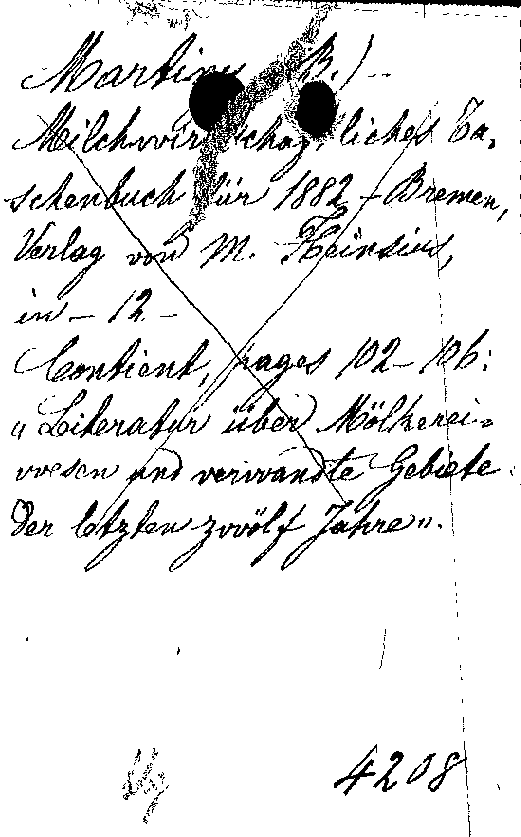 Martiny (B.)
Milchwirtschaftliches Ta-
schenbuch für 1882 - Bremen,
Verlag von M. Heinsius,
in - 12 -
Contient, pages 102-106:
"Literatur über Mölkerei-
wesen und verwandte Gebiete
der letzten zwölf Jahre".
4208